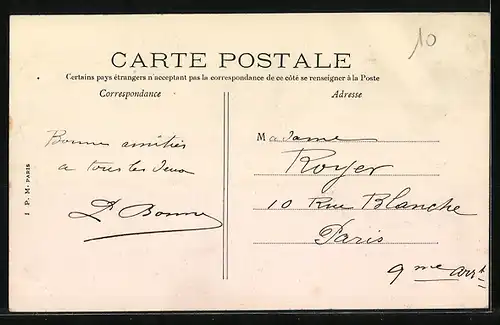 10
CARTE POSTALE
Certains pays étrangers n'acceptant pas la correspondance de ce côté se renseigner à la Poste
Correspondance
Adresse
Bonnes amitiés
a tous les deux
Bonne
Madame
Royer
10 Rue Blanche
Paris
9me Arrt
I P. M. PARIS